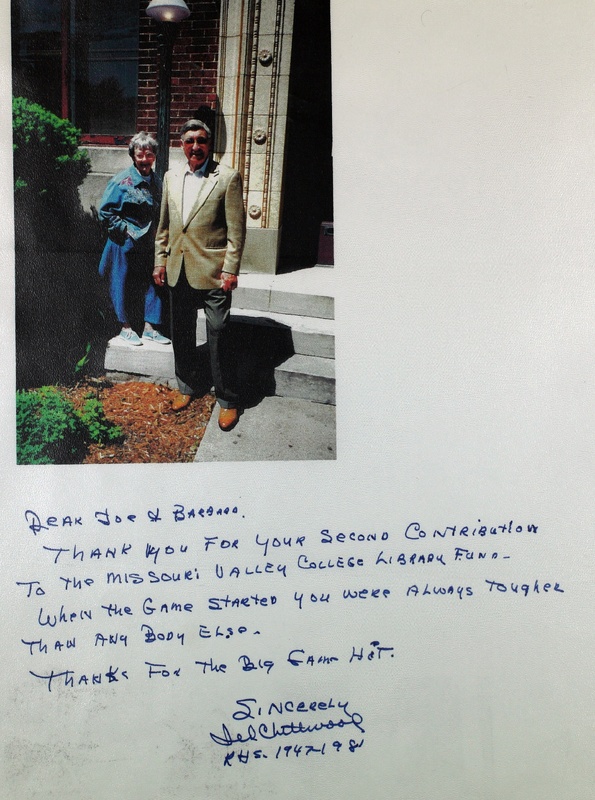 Dear Joe & Barbara.
Thank you for your second contribution
to the Missouri Valley College Library Fund-
When the game started you were always tougher
than any body else.
Thanks for the big game hit.
Sincerely
Del Chittwood
RHS. 1947-1981